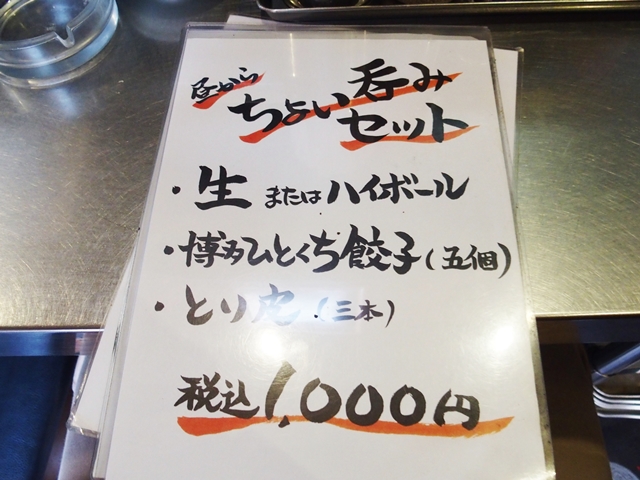 昼から
ちょい呑み
セット
・生またはハイボール
・博多ひとくち餃子(五個)
・とり皮(三本)
税込1,000円